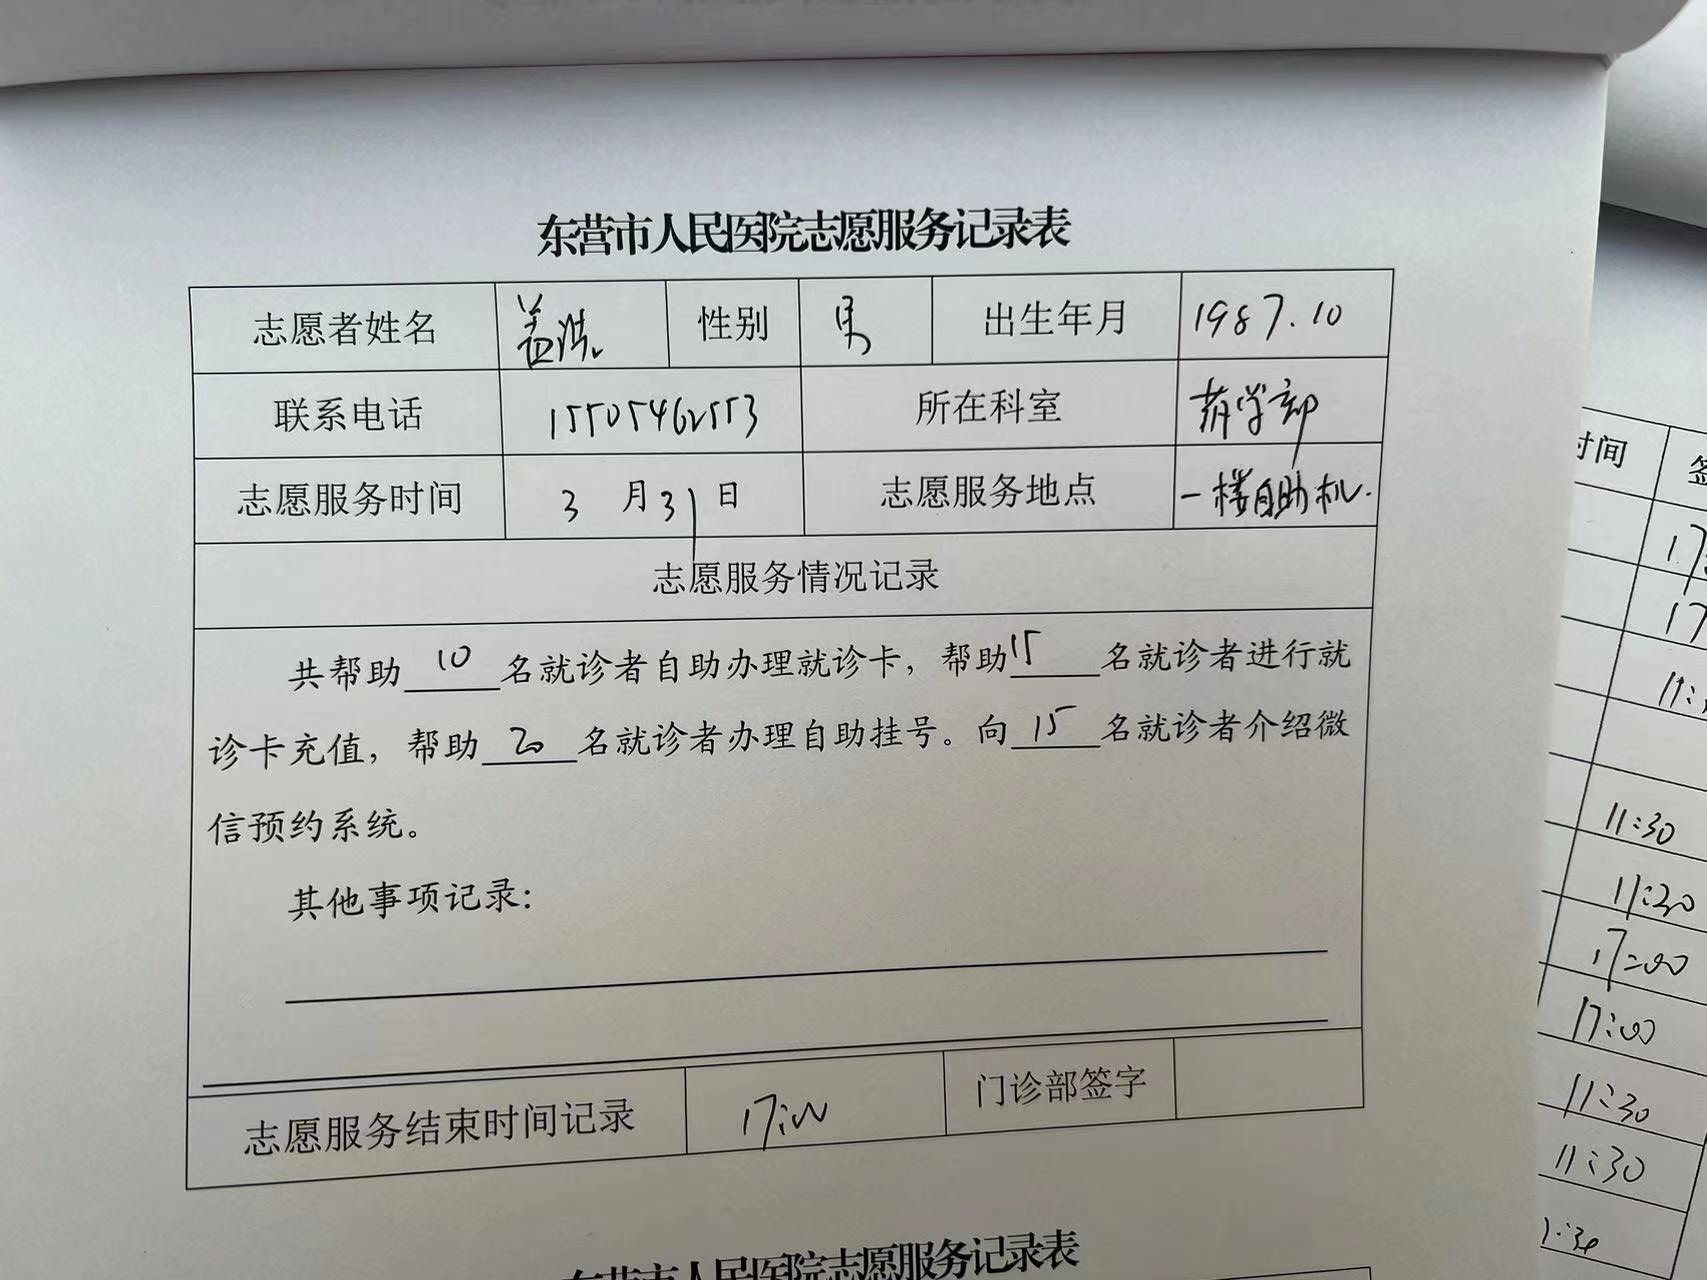 东营市人民医院志愿服务记录表
志愿者姓名 盖洪 性别 男 出生年月 1987.10
联系电话 15505462553 所在科室 药学部
志愿服务时间 3月31日 志愿服务地点 一楼自助机.
志愿服务情况记录
共帮助 10 名就诊者自助办理就诊卡，帮助 15 名就诊者进行就
诊卡充值，帮助 20 名就诊者办理自助挂号。向 15 名就诊者介绍微
信预约系统。
其他事项记录：
志愿服务结束时间记录 17:00 门诊部签字
东营市人民医院志愿服务记录表
时间
11:30
11:30
17:00
17:00
11:30
11:30